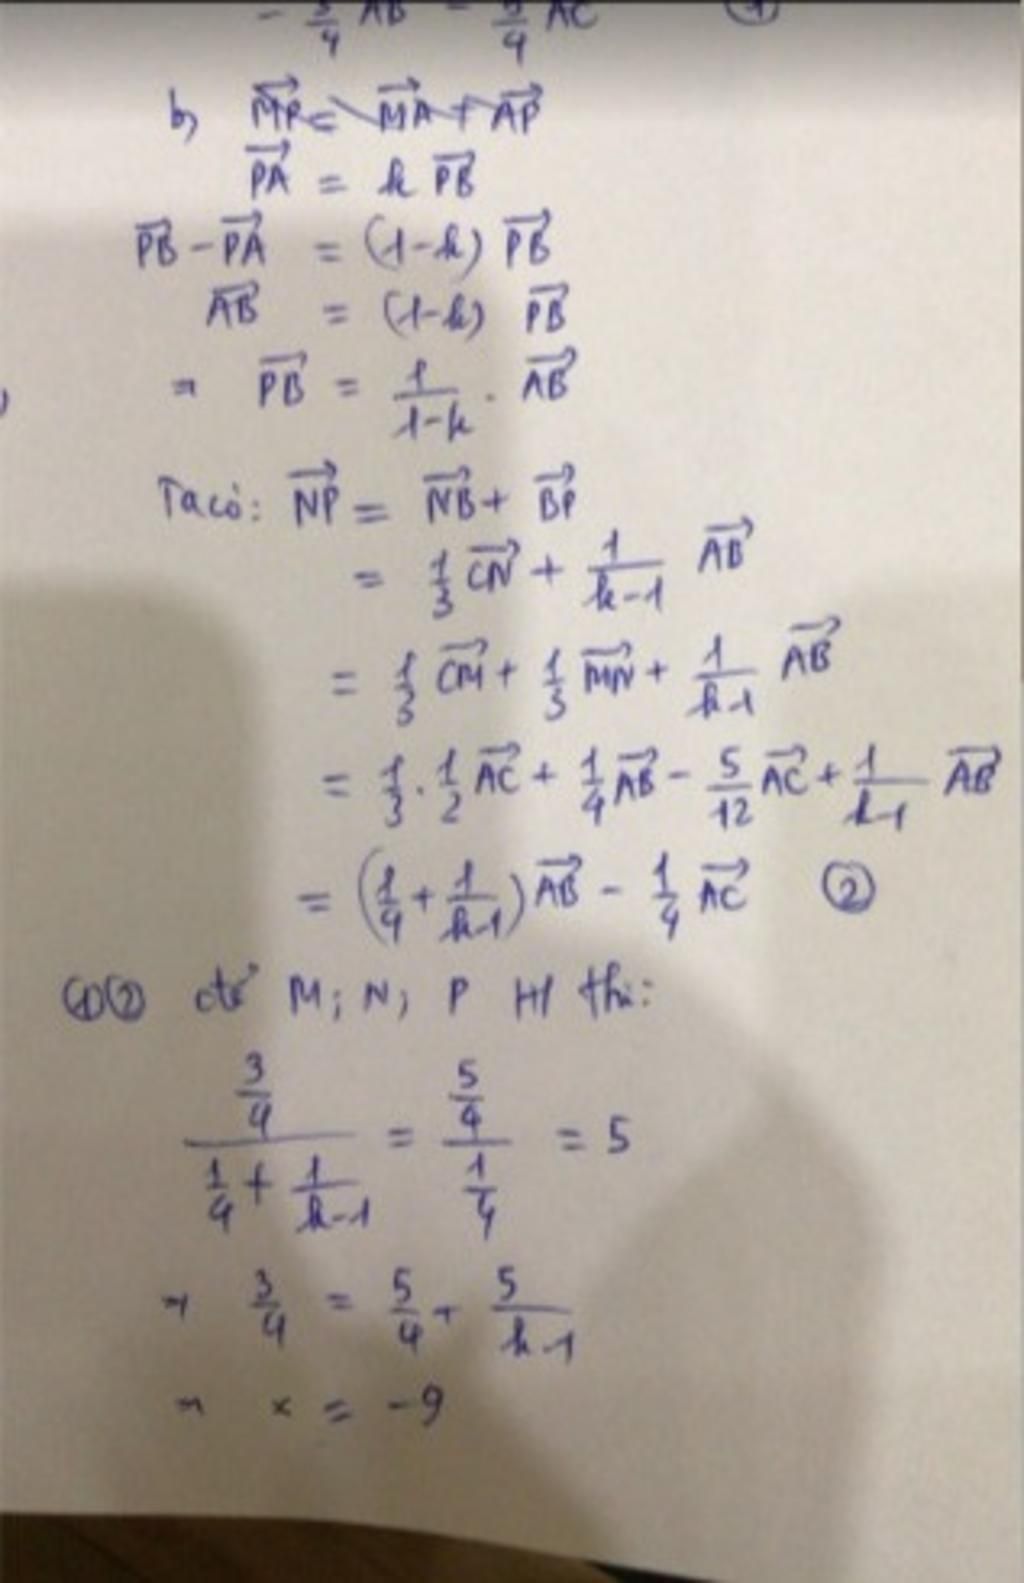 - 3/4 AB - 5/4 AC ①
b, MP = MA + AP
PA = k PB
PB - PA = (1-k) PB
AB = (1-k) PB
⇒ PB = 1/(1-k) . AB
Ta có: NP = NB + BP
= 1/3 CN + 1/(k-1) AB
= 1/3 CM + 1/3 MN + 1/(k-1) AB
= 1/3 . 1/2 AC + 1/4 AB - 5/12 AC + 1/(k-1) AB
= (1/4 + 1/(k-1)) AB - 1/4 AC ②
①② để M; N; P t/h thì:
(3/4)/(1/4 + 1/(k-1)) = (5/4)/(1/4) = 5
⇒ 3/4 = 5/4 + 5/(k-1)
⇒ x = -9